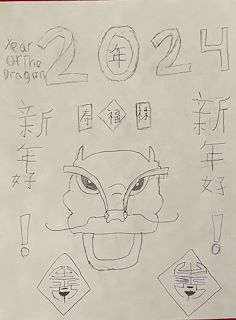 Year
Of The
Dragon
2024
年
新
年
好
!
春
福
新
年
好
!